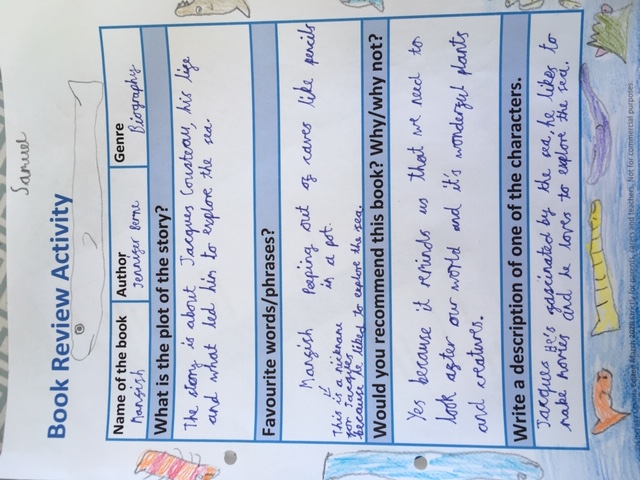 Samuel
Book Review Activity
Name of the book
Author
Genre
Manfish
Jennifer Berne
Biography
What is the plot of the story?
The story is about Jacques Cousteau, his life
and what led him to explore the sea.
Favourite words/phrases?
Manfish
Peeping out of caves like pencils
in a pot.
This is a nickname
for Jacques
because he liked to explore the sea.
Would you recommend this book? Why/why not?
Yes because it reminds us that we need to
look after our world and it's wonderful plants
and creatures.
Write a description of one of the characters.
Jacques He's fascinated by the sea, he likes to
make movies and he loves to explore the sea.
Not for commercial purposes